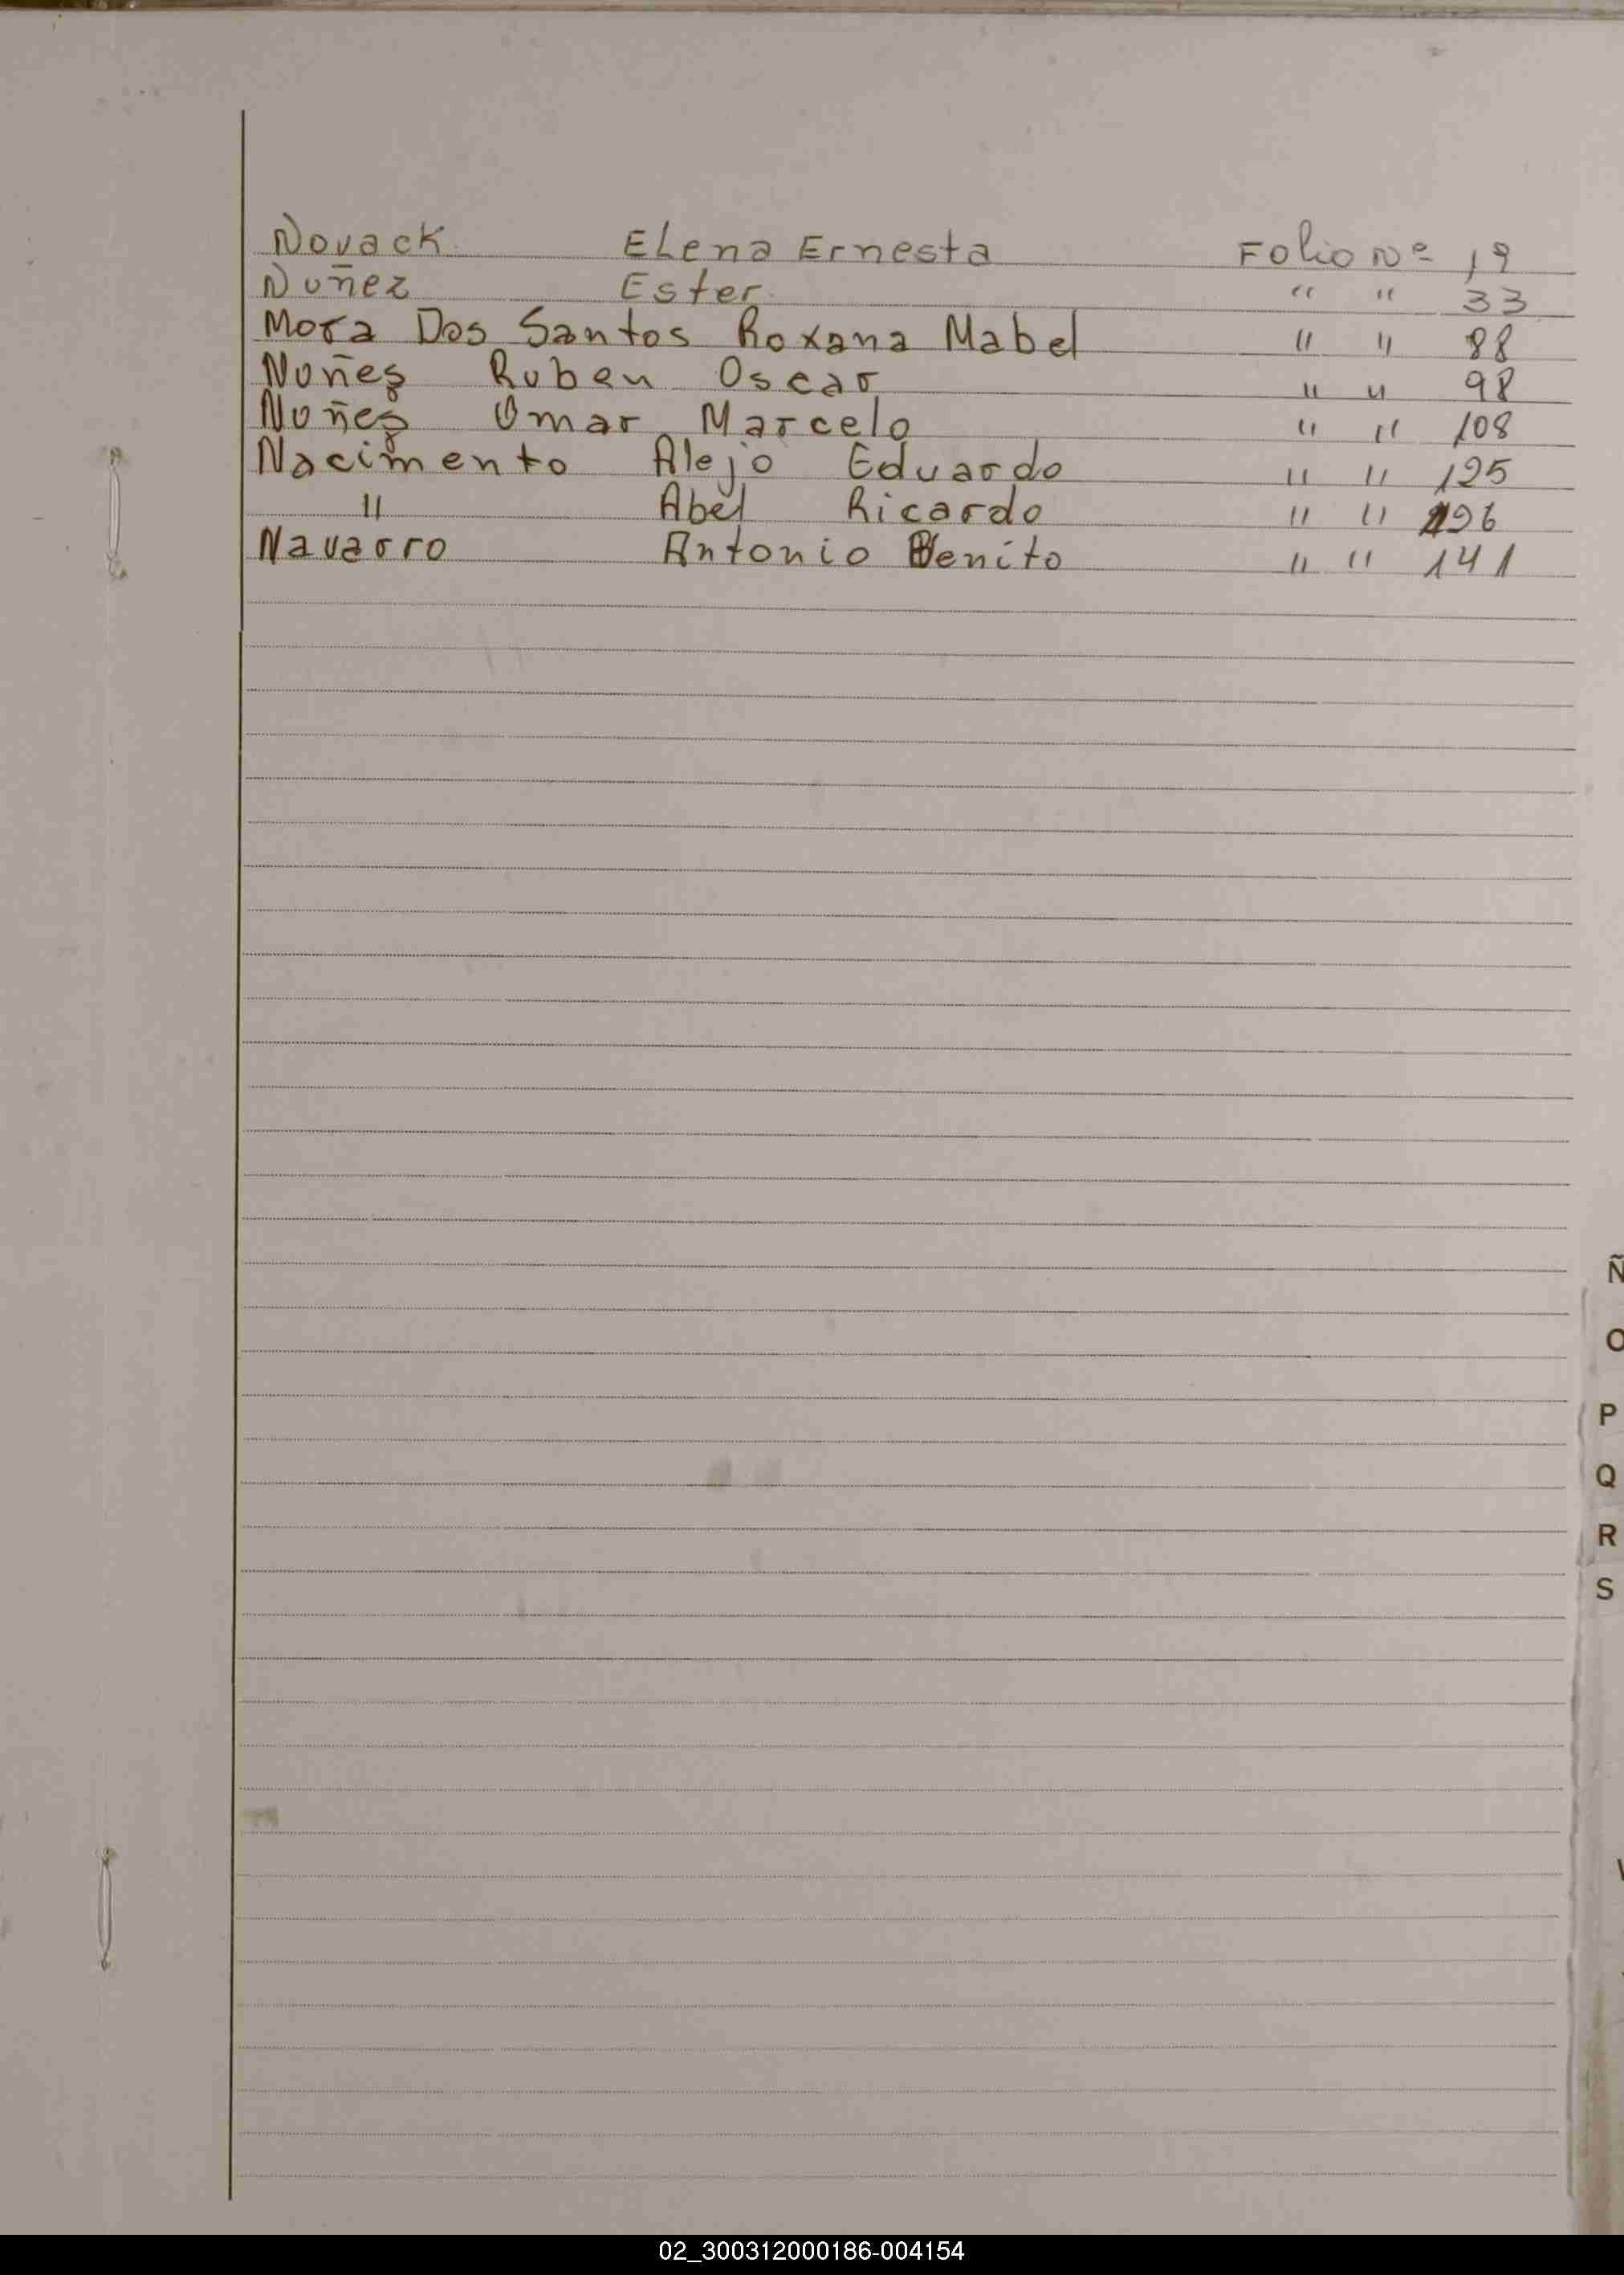 Novack Elena Ernesta Folio Nº 19
Nuñez Ester " " 33
Mora Dos Santos Roxana Mabel " " 88
Nuñez Ruben Oscar " " 98
Nuñez Omar Marcelo " " 108
Nacimento Alejo Eduardo " " 125
" Abel Ricardo " " 126
Navarro Antonio Benito " " 141
Ñ
O
P
Q
R
S
02_300312000186-004154